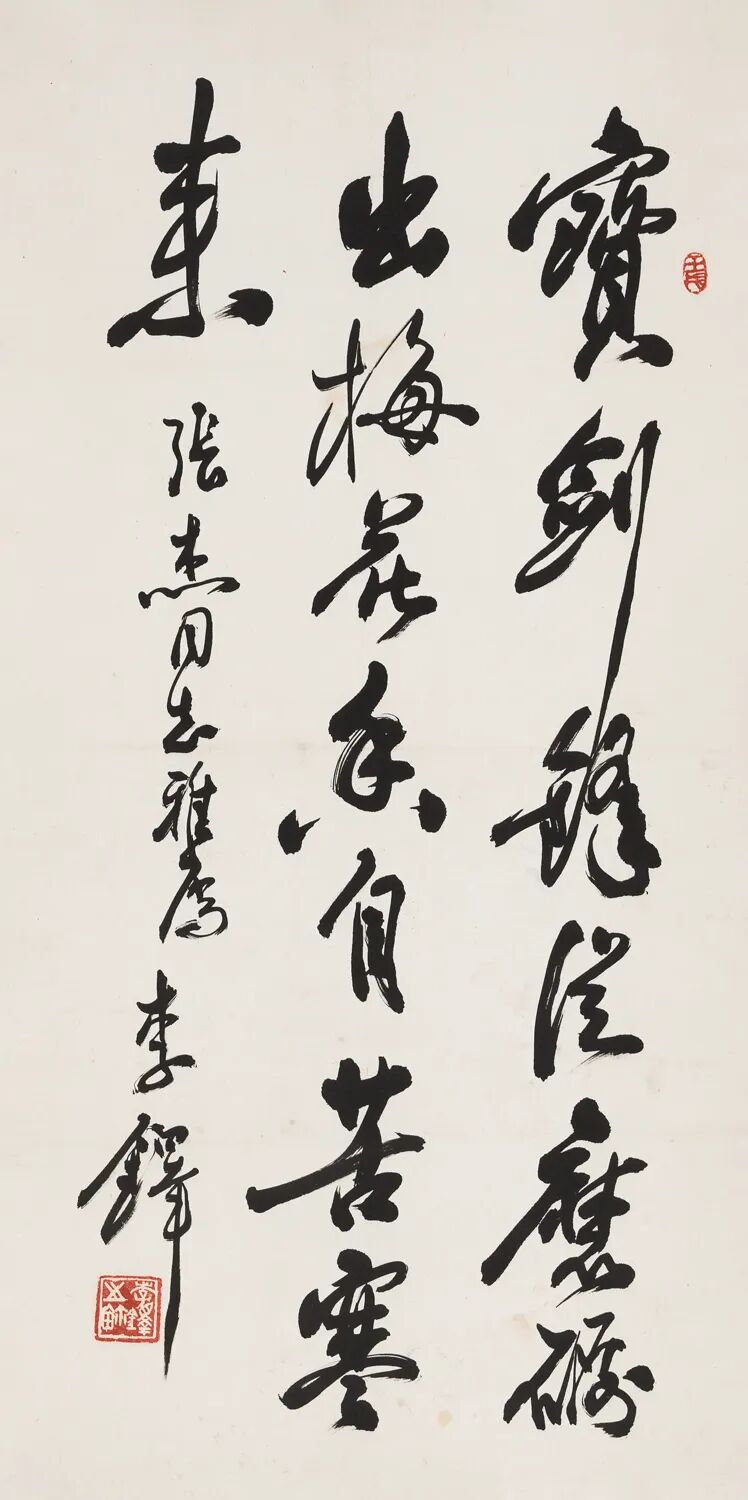 寶劍鋒從磨礪
出梅花香自苦寒
來 張杰同志雅屬 李鐸